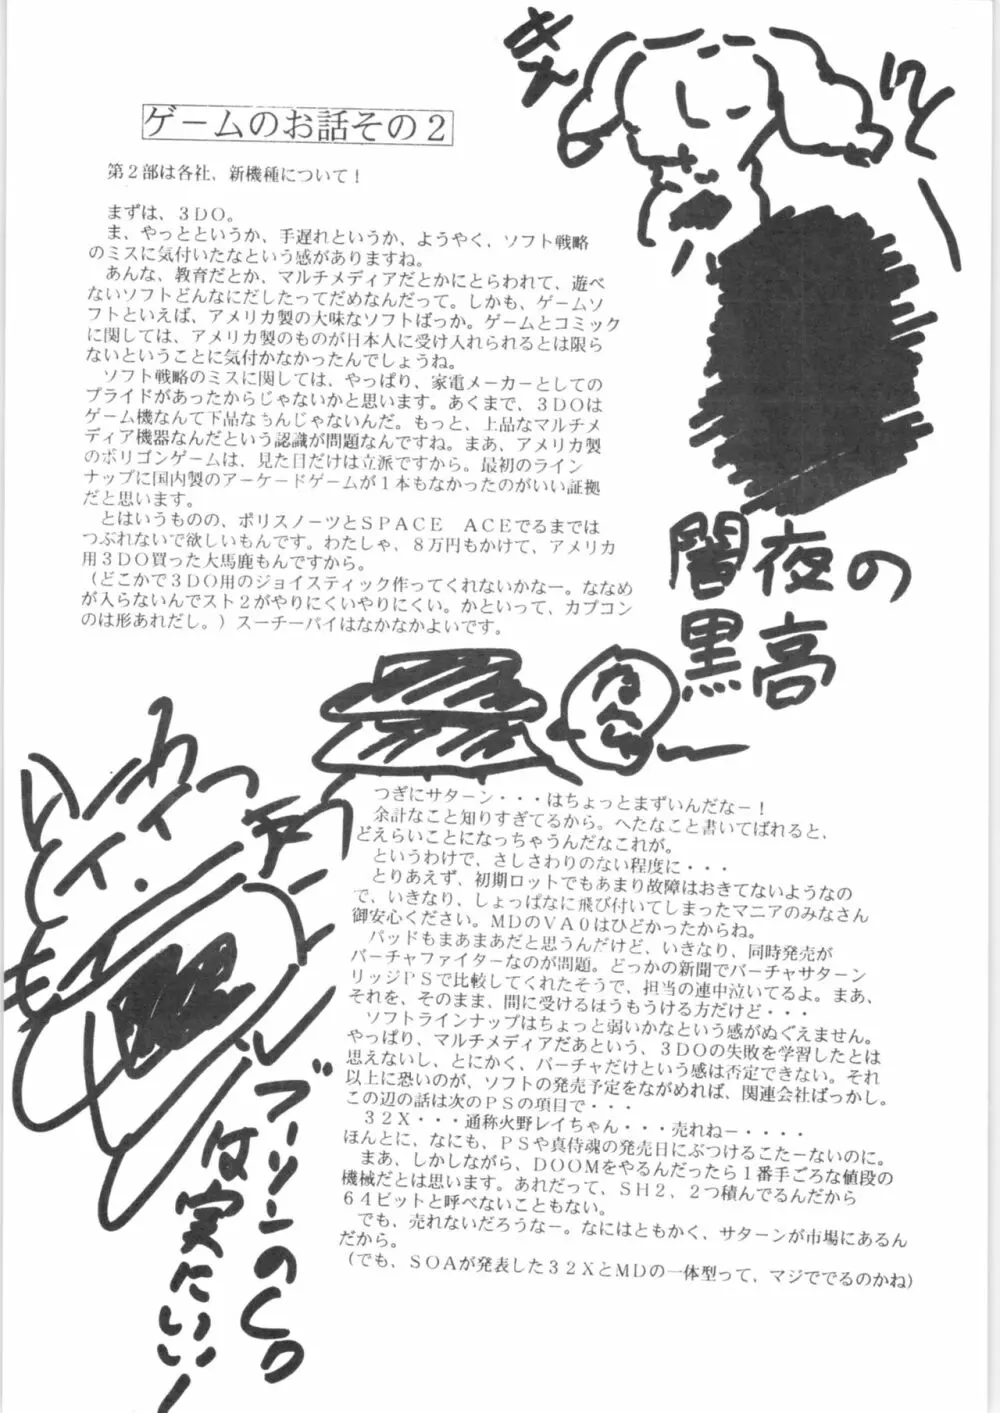 ゲームのお話その2
第2部は各社、新機種について!
まずは、3DO。
ま、やっとというか、手遅れというか、ようやく、ソフト戦略
のミスに気付いたなという感がありますね。
あんな、教育だとか、マルチメディアだとかにとらわれて、遊べ
ないソフトどんなにだしたってだめなんだって。しかも、ゲームソ
フトといえば、アメリカ製の大味なソフトばっか。ゲームとコミック
に関しては、アメリカ製のものが日本人に受け入れられるとは限ら
ないということに気付かなかったんでしょうね。
ソフト戦略のミスに関しては、やっぱり、家電メーカーとしての
プライドがあったからじゃないかと思います。あくまで、3DOは
ゲーム機なんて下品なもんじゃないんだ。もっと、上品なマルチメ
ディア機器なんだという認識が問題なんですね。まあ、アメリカ製
のポリゴンゲームは、見た目だけは立派ですから。最初のライン
ナップに国内製のアーケードゲームが1本もなかったのがいい証拠
だと思います。
とはいうものの、ポリスノーツとSPACE ACEでるまでは
つぶれないで欲しいもんです。わたしゃ、8万円もかけて、アメリカ
用3DO買った大馬鹿もんですから。
(どこかで3DO用のジョイスティック作ってくれないかなー。ななめ
が入らないんでスト2がやりにくいやりにくい。かといって、カプコン
のは形あれだし。)スーチーパイはなかなかよいです。
闇夜の
黒高
つぎにサターン・・・はちょっとまずいんだなー!
余計なこと知りすぎてるから。へたなこと書いてばれると、
どえらいことになっちゃうんだなこれが。
というわけで、さしさわりのない程度に・・・
とりあえず、初期ロットでもあまり故障はおきてないようなの
で、いきなり、しょっぱなに飛び付いてしまったマニアのみなさん
御安心ください。MDのVA0はひどかったからね。
パッドもまあまあだと思うんだけど、いきなり、同時発売が
バーチャファイターなのが問題。どっかの新聞でバーチャサターン
リッジPSで比較してくれたそうで、担当の連中泣いてるよ。まあ、
それを、そのまま、間に受けるほうもうける方だけど・・・
ソフトラインナップはちょっと弱いかなという感がぬぐえません。
やっぱり、マルチメディアだあという、3DOの失敗を学習したとは
思えないし、とにかく、バーチャだけという感は否定できない。それ
以上に恐いのが、ソフトの発売予定をながめれば、関連会社ばっかし。
この辺の話は次のPSの項目で・・・
32X・・・通称火野レイちゃん・・・売れねー・・・・
ほんとに、なにも、PSや真侍魂の発売日にぶつけるこたーないのに。
まあ、しかしながら、DOOMをやるんだったら1番手ごろな値段の
機械だとは思います。あれだって、SH2、2つ積んでるんだから
64ビットと呼べないこともない。
でも、売れないだろうなー。なにはともかく、サターンが市場にあるん
だから。
(でも、SOAが発表した32XとMDの一体型って、マジででるのかね)
ブーソンのCD
は実にいい!